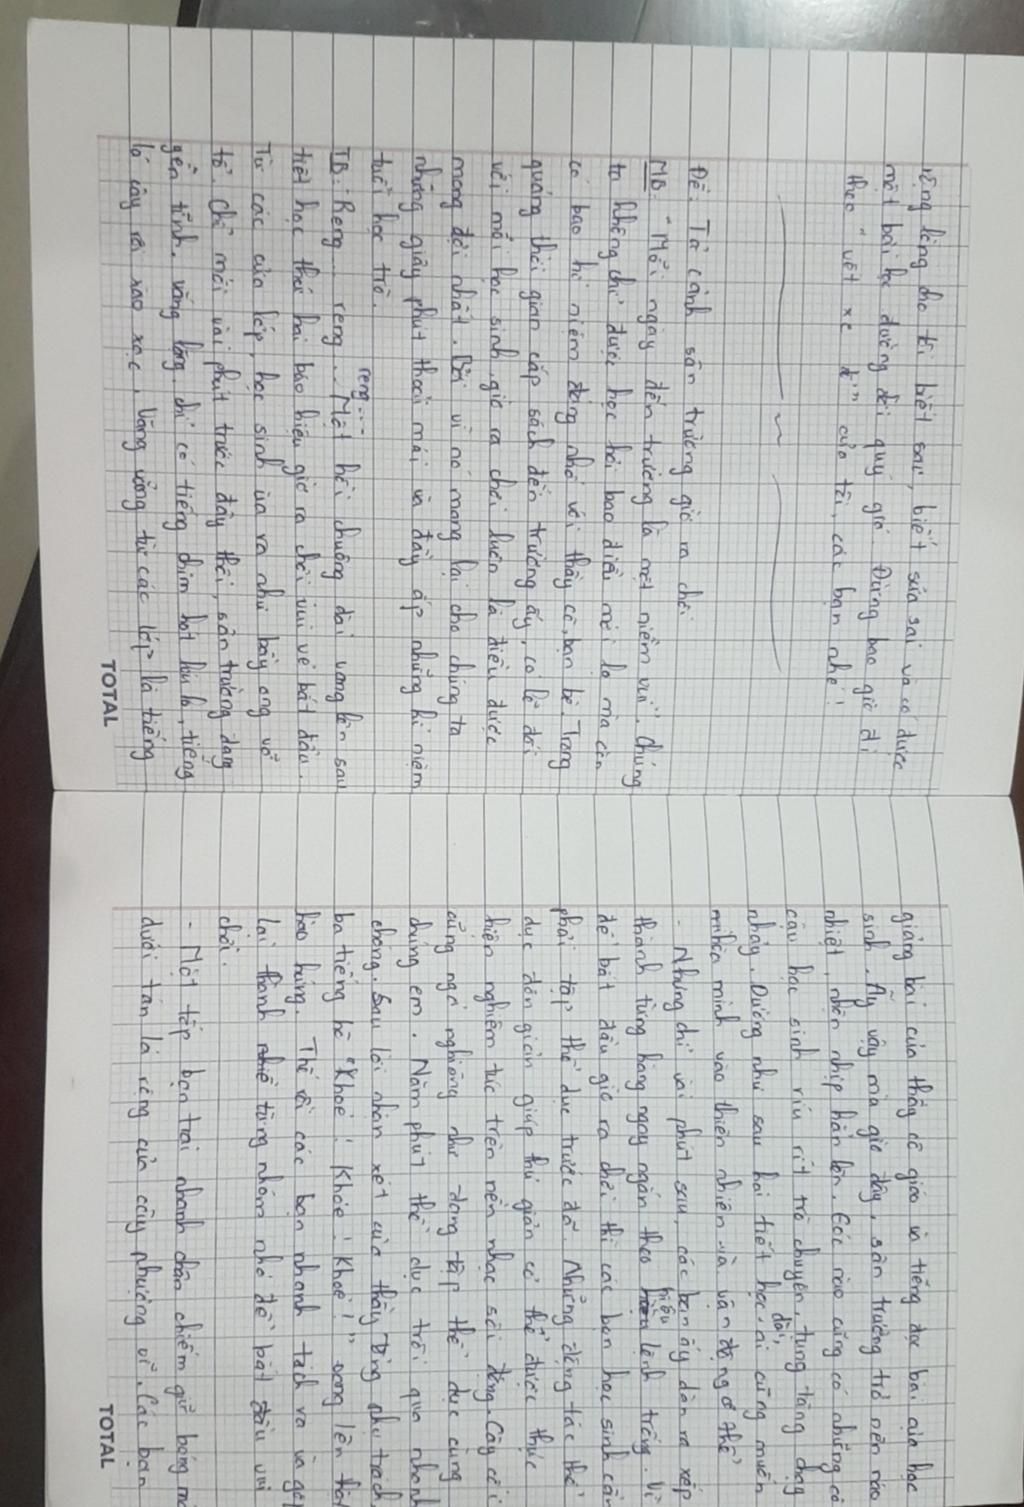 rộng lòng cho tôi biết sai, biết sửa sai và có được
một bài học đường đời quý giá. Đừng bao giờ đi
theo "vết xe đổ" của tôi, các bạn nhé!
Đề: Tả cảnh sân trường giờ ra chơi
MB: "Mỗi ngày đến trường là một niềm vui". Chúng
ta không chỉ được học hỏi bao điều mới lạ mà còn
có bao kỉ niệm đáng nhớ với thầy cô, bạn bè. Trong
quãng thời gian cắp sách đến trường ấy, có lẽ đối
với mỗi học sinh, giờ ra chơi luôn là điều được
mong đợi nhất. Bởi vì nó mang lại cho chúng ta
những giây phút thoải mái và đầy ắp những kỉ niệm
tuổi học trò.
TB: Reng... reng... reng... Một hồi chuông dài vang lên sau
tiết học thứ hai báo hiệu giờ ra chơi vui vẻ bắt đầu.
Từ các cửa lớp, học sinh ùa ra như bầy ong vỡ
tổ. Chỉ mới vài phút trước đây thôi, sân trường đang
yên tĩnh, vắng lặng, chỉ có tiếng chim hót líu lo, tiếng
lá cây rơi xào xạc. Vang vẳng từ các lớp là tiếng
TOTAL
giảng bài của thầy cô giáo và tiếng đọc bài của học
sinh. Ấy vậy mà giờ đây, sân trường trở nên náo
nhiệt, nhộn nhịp hẳn lên. Góc nào cũng có những cô
cậu học sinh ríu rít trò chuyện, tung tăng chạy
nhảy. Dường như sau hai tiết học dài, ai cũng muốn
mình vào thiên nhiên và vận động cơ thể
- Nhưng chỉ vài phút sau, các bạn ấy dàn ra xếp
thành từng hàng ngay ngắn theo hiệu lệnh trống. Vì
để bắt đầu giờ ra chơi thì các bạn học sinh cần
phải tập thể dục trước đó. Những động tác thể
dục đơn giản giúp thư giãn cơ thể được thực
hiện nghiêm túc trên nền nhạc sôi động. Cây cối
cũng ngả nghiêng như đang tập thể dục cùng
chúng em. Năm phút thể dục trôi qua nhanh
chóng. Sau lời nhận xét của thầy tổng phụ trách
ba tiếng hô "Khoẻ! Khoẻ! Khoẻ!" vang lên đầy
hào hứng. Thế rồi các bạn nhanh tách ra và gộp
lại thành từng nhóm nhỏ để bắt đầu vui
chơi.
- Một tốp bạn trai nhanh chân chiếm giữ bóng mát
dưới tán lá rộng của cây phượng vĩ. Các bạn
TOTAL